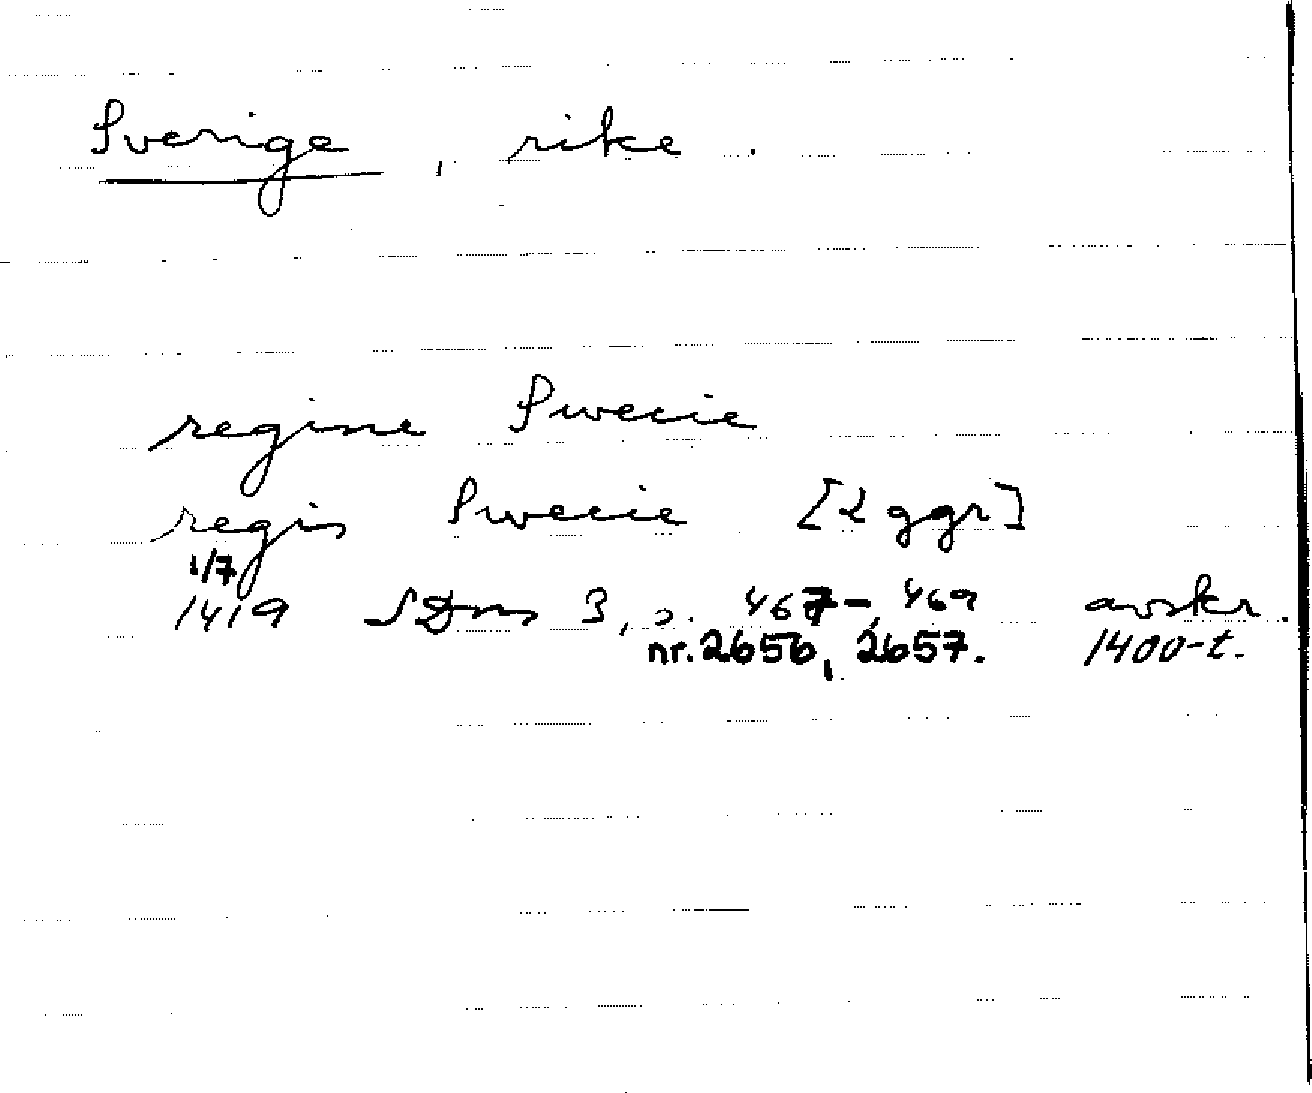 Sverige, rike.
regine Swecie
regis Swecie [2 ggr]
1/7
1419 SDns 3, s. 467-469 avskr.
nr. 2656, 2657. 1400-t.